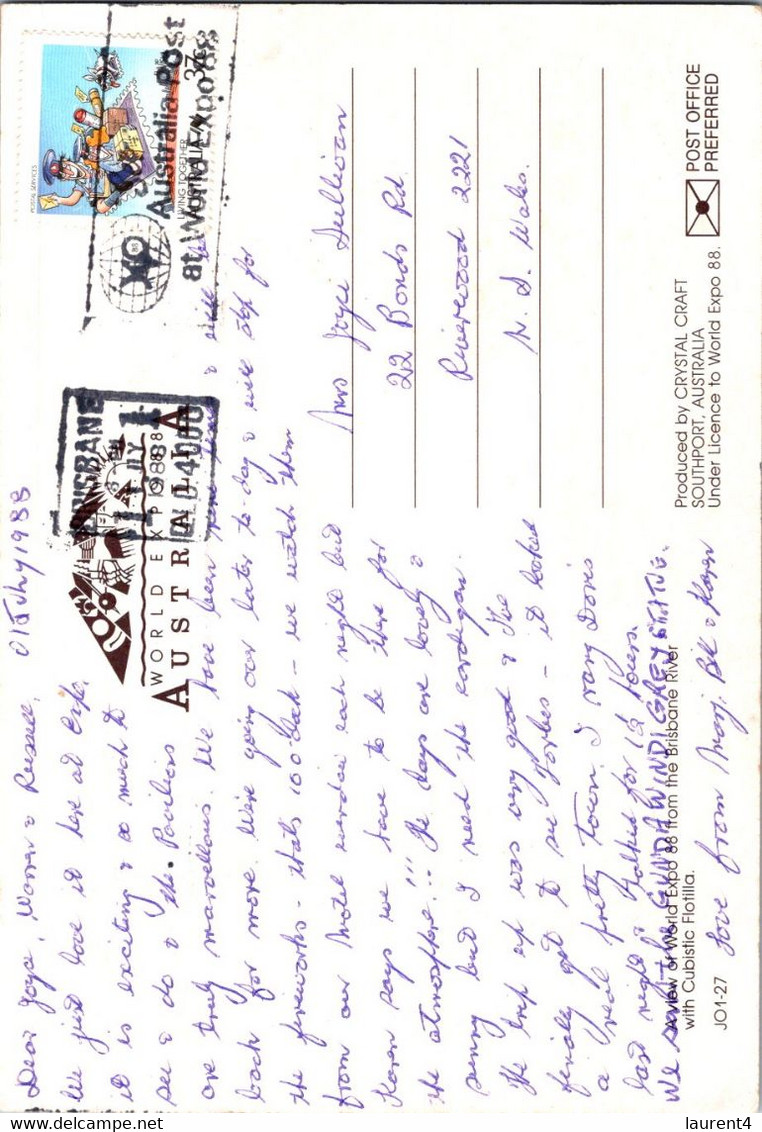 01 July 1988
Dear Joyce, Warren & Russell,
We just love it here at Expo.
it is exciting & so much to
see & do & the Pavilions
are truly marvellous. We have been here & will be
back for more. We're going over later to-day & will stop for
the fireworks - that's 10 o'clock - we watch them
from our Motel window each night but
Karen says we have to be there for
the atmosphere..!!! The days are lovely &
sunny but I need the cardigan.
The trip up was very good & I've
finally got to see Forbes - it looked
a real pretty town. I rang Doris
last night & talked for 1½ hours.
We saw the GUNDIAWINDI GREY STATUE.
Love from Marj. Bill & Karen
Mrs Joyce Sullivan
22 Bonds Rd
Riverwood 2221
N. S. Wales.
POSTAL SERVICES
LIVING TOGETHER
AUSTRALIA
37c
Australia Post
at World Expo 88
88
BRISBANE
JLY
QLD 4000
WORLD EXPO 1988
AUSTRALIA
POST OFFICE
PREFERRED
Produced by CRYSTAL CRAFT
SOUTHPORT, AUSTRALIA
Under Licence to World Expo 88.
A view of World Expo 88 from the Brisbane River
with Cubistic Flotilla.
JO1-27
laurent4